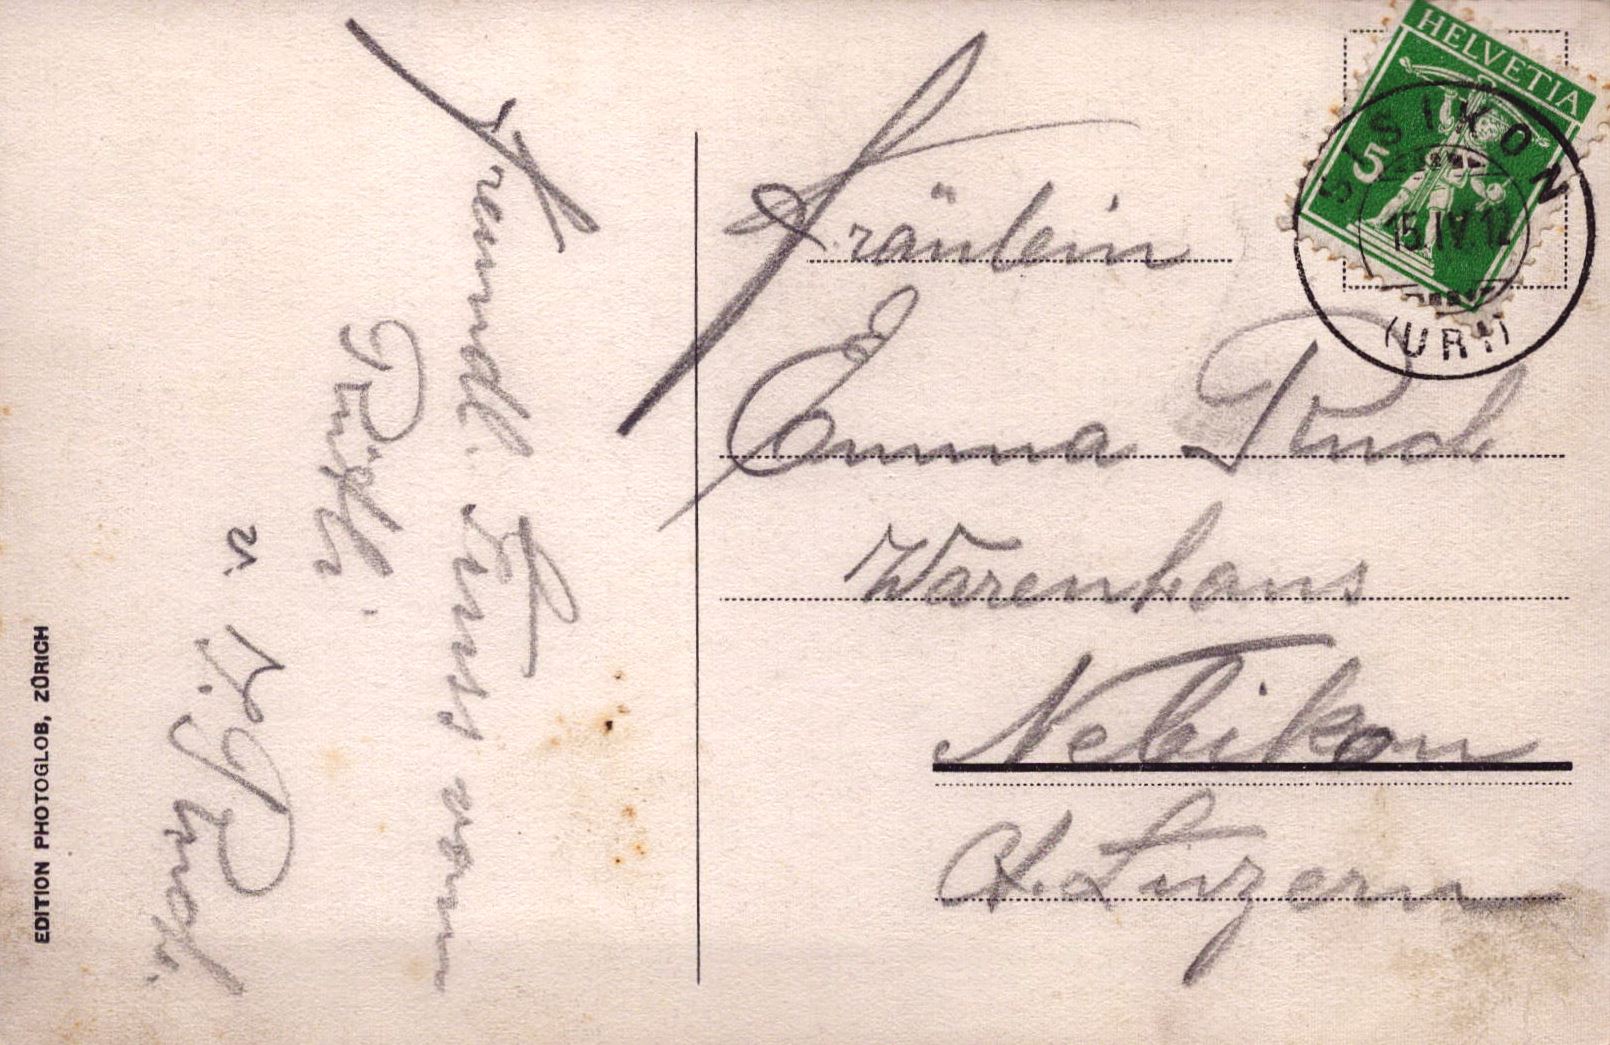 Freundl. Gruss vom
Rütli
v. J. Ruch.
EDITION PHOTOGLOB, ZÜRICH
HELVETIA
5
SISIKON
15.IV.12
(URI)
Fräulein
Emma Ruch
Warenhaus
Nebikon
Kt. Luzern